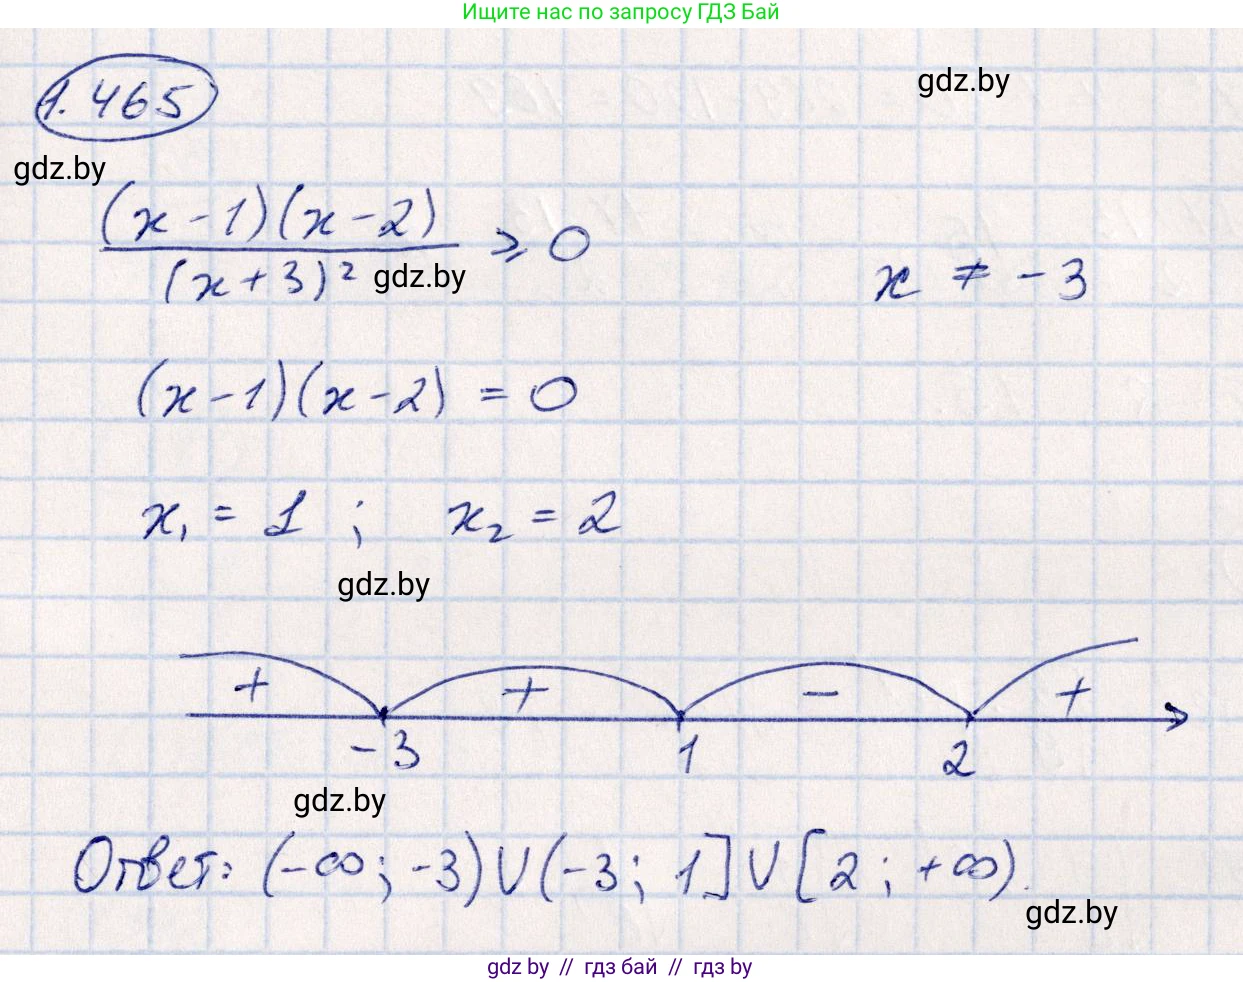 Ищите нас по запросу ГДЗ Бай
1.465
gdz.by
gdz.by
(x - 1)(x - 2)
(x + 3)² ⩾ 0
gdz.by
x ≠ - 3
(x - 1)(x - 2) = 0
x₁ = 1 ; x₂ = 2
gdz.by
+ + - +
- 3 1 2
gdz.by
Ответ: (-∞; -3) ∪ (-3; 1] ∪ [2; +∞).
gdz.by
gdz by // гдз бай // гдз by